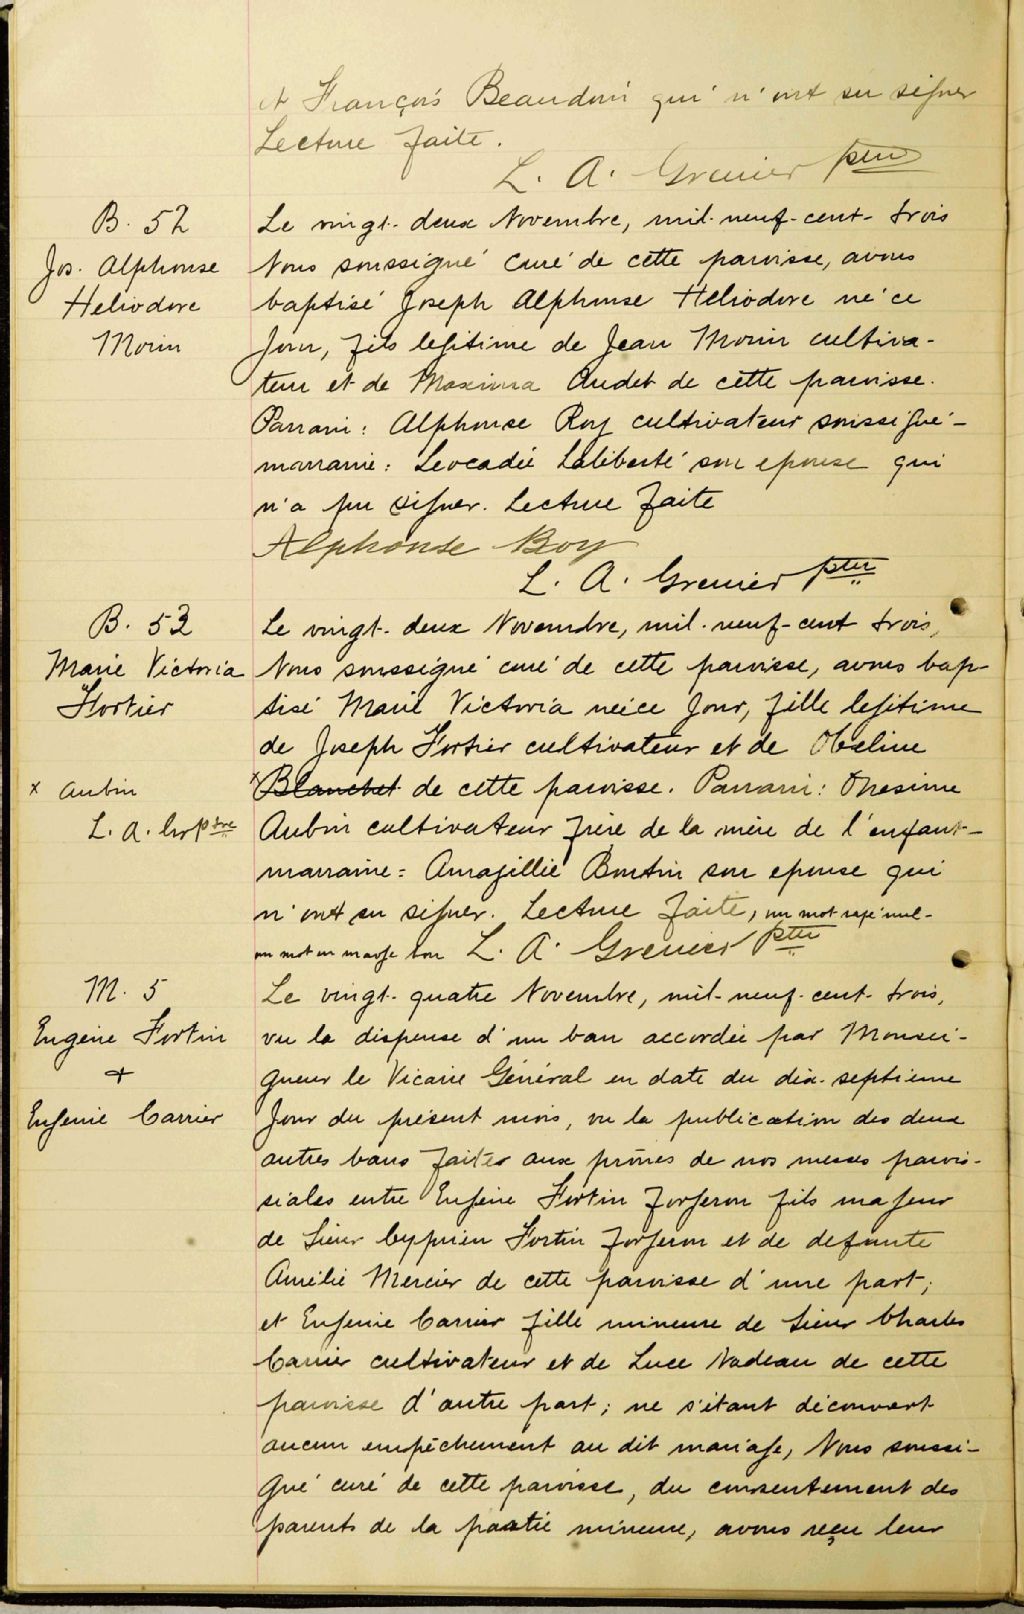 et François Beaudoin qui n'ont su signer
Lecture faite.
L. A. Grenier ptre
B. 52
Jos. Alphonse
Heliodore
Morin
Le vingt-deux Novembre, mil-neuf-cent-trois
Nous soussigné curé de cette paroisse, avons
baptisé Joseph Alphonse Héliodore né ce
jour, fils legitime de Jean Morin cultiva-
teur et de Maxima Audet de cette paroisse.
Parrain: Alphonse Roy cultivateur soussigné-
marraine: Leocadie Laliberté son epouse qui
n'a pu signer. Lecture faite
Alphonse Roy
L. A. Grenier ptre
B. 53
Marie Victoria
Fortier
x Aubin
L. A. Gr ptre
Le vingt-deux Novembre, mil-neuf-cent trois,
Nous soussigné curé de cette paroisse, avons bap-
tisé Marie Victoria neé ce jour, fille legitime
de Joseph Fortier cultivateur et de Obeline
x Blanchet de cette paroisse. Parrain: Onesime
Aubin cultivateur frère de la mère de l'enfant-
marraine: Amagillie Boutin son epouse qui
n'ont su signer. Lecture faite, un mot rayé nul-
un mot en marge bon L. A. Grenier ptre
M. 5
Eugène Fortin
+
Eugenie Carrier
Le vingt-quatre Novembre, mil-neuf-cent-trois,
vu la dispense d'un ban accordée par Monsei-
gneur le Vicaire Général en date du dix-septieme
jour du présent mois, vu la publication des deux
autres bans faites aux prônes de nos messes parois-
siales entre Eugène Fortin forgeron fils majeur
de Sieur Cyprien Fortin forgeron et de defunte
Amélie Mercier de cette paroisse d'une part;
et Eugenie Carrier fille mineure de Sieur Charles
Carrier cultivateur et de Luce Nadeau de cette
paroisse d'autre part; ne s'étant découvert
aucun empêchement au dit mariage, Nous soussi-
gné curé de cette paroisse, du consentement des
parents de la partie mineure, avons reçu leur